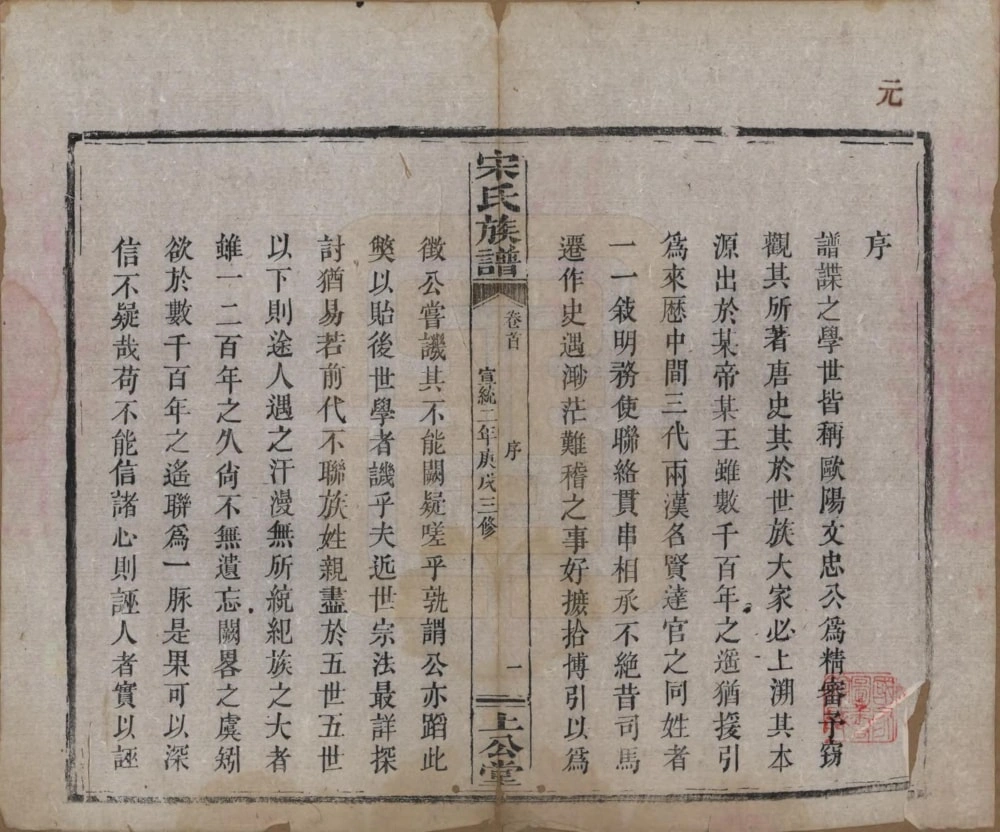 元
序
譜諜之學世皆稱歐陽文忠公爲精審予竊
觀其所著唐史其於世族大家必上溯其本
源出於某帝某王雖數千百年之遙猶援引
爲來歴中間三代兩漢名賢達官之同姓者
一一敍明務使聯絡貫串相承不絶昔司馬
遷作史遇渺茫難稽之事好摭拾博引以爲
宋氏族譜
卷首
序
宣統二年庚戌三修
一
上公堂
徵公嘗譏其不能闕疑嗟乎孰謂公亦蹈此
獘以貽後世學者譏乎夫近世宗法最詳探
討猶易若前代不聯族姓親盡於五世五世
以下則途人遇之汗漫無所統紀族之大者
雖一二百年之久尙不無遺忘闕畧之虞矧
欲於數千百年之遙聯爲一脉是果可以深
信不疑哉苟不能信諸心則誣人者實以誣